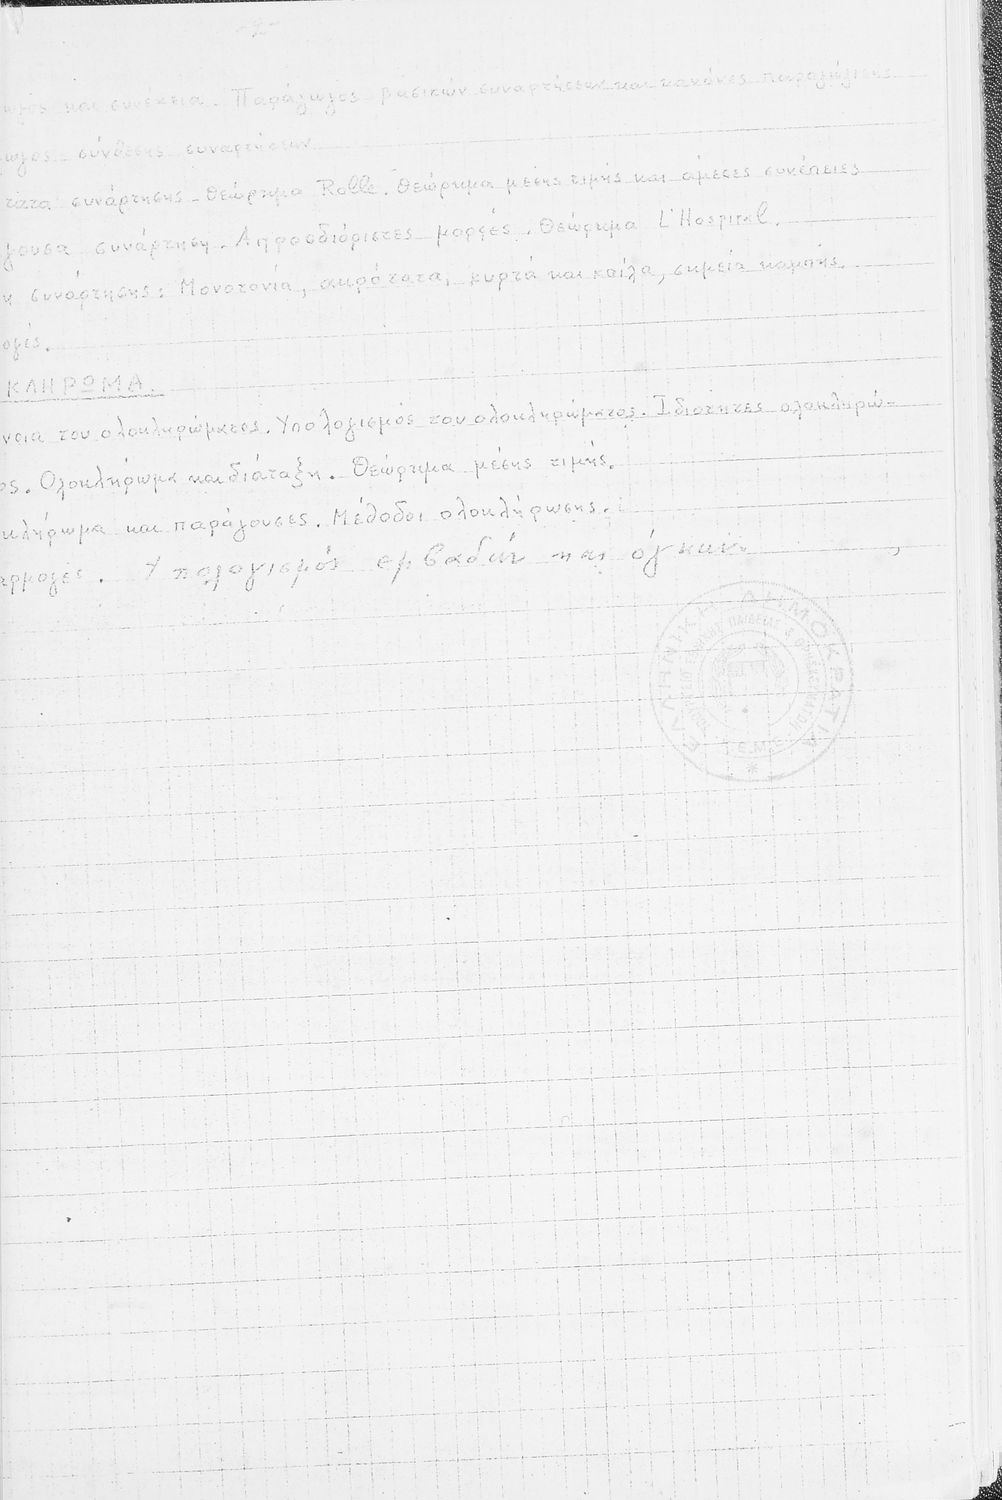 -2-
και συνέχεια. Παράγωγος βασικών συναρτήσεων και κανόνες παραγώγισης
σύνθεσης συναρτήσεων
συνάρτησης - Θεώρημα Rolle. Θεώρημα μέσης τιμής και άμεσες συνέπειες
γουσα συνάρτηση. Απροσδιόριστες μορφές. Θεώρημα L'Hospital.
η συνάρτησης: Μονοτονία, ακρότατα, κυρτά και κοίλα, σημεία καμπής.
ογές.
ΚΛΗΡΩΜΑ.
νεια του ολοκληρώματος. Υπολογισμός του ολοκληρώματος. Ιδιότητες ολοκληρώ-
ος. Ολοκλήρωμα και διάταξη. Θεώρημα μέσης τιμής.
κλήρωμα και παράγουσες. Μέθοδοι ολοκλήρωσης.
ερμογές. Υπολογισμός εμβαδών και όγκων.
ΕΛΛΗΝΙΚΗ ΔΗΜΟΚΡΑΤΙΑ
ΥΠΟΥΡΓΕΙΟ ΕΘΝΙΚΗΣ ΠΑΙΔΕΙΑΣ & ΘΡΗΣΚΕΥΜΑΤΩΝ